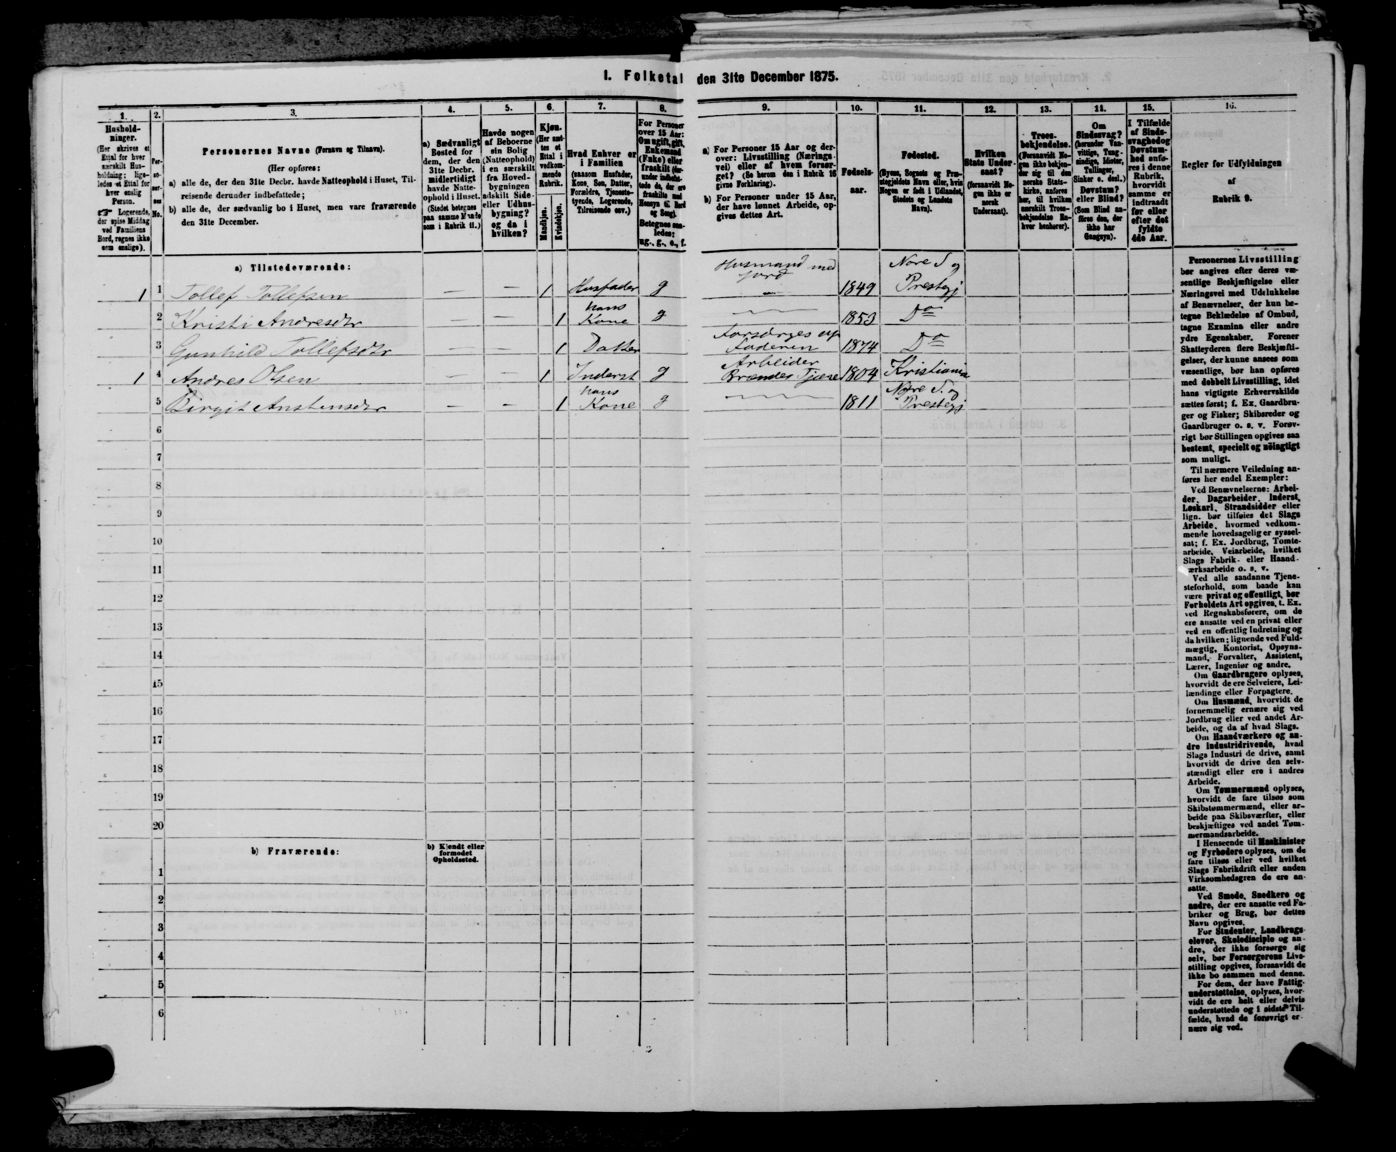 1. Folketal den 31te December 1875.
1.
Hushold-
ninger.
(Her skrives et
Ettal for hver
særskilt Hus-
holdning; lige-
ledes et Ettal for
hver enslig
Person.
Logerende,
der spise Middag
ved Familiens
Bord, regnes ikke
som enslige).
2.
Per-
so-
ner-
nes
No.
3.
Personernes Navne (Fornavn og Tilnavn).
(Her opføres:
a) alle de, der den 31te Decbr. havde Natteophold i Huset, Til-
reisende derunder indbefattede;
b) alle de, der sædvanlig bo i Huset, men vare fraværende
den 31te December.
4.
a) Sædvanligt
Bosted for
dem, der den
31te Decbr.
midlertidigt
havde Natte-
ophold i Huset.
(Stedet betegnes
paa samme Maade
som i Rubrik 11.)
5.
Havde nogen
af Beboerne
sin Bolig
(Natteophold)
i en særskilt
fra Hoved-
bygningen
adskilt Side-
eller Udhus-
bygning?
og da i
hvilken?
6.
Kjøn.
(Her sæt-
tes et
Ettal i
vedkom-
mende
Rubrik.
Mandkjøn.
Kvindekjøn.
7.
Hvad Enhver er
i Familien
(saasom Husfader,
Kone, Søn, Datter,
Forældre, Tjeneste-
tyende, Logerende,
Tilreisende osv.)
8.
For Personer
over 15 Aar:
Om ugift, gift,
Enkemand
(Enke) eller
fraskilt
Betegnes saa-
ledes:
ug., g., e., f.
9.
a) For Personer 15 Aar og der-
over: Livsstilling (Nærings-
vei) eller af hvem forsør-
get? (Se herom den i Rubrik 16
givne Forklaring).
b) For Personer under 15 Aar,
der have lønnet Arbeide, op-
gives dettes Art.
10.
Fødsels-
aar.
11.
Fødested.
(Byens, Sognets og Præ-
stegjeldets Navn eller, hvis
Nogen er født i Udlandet,
Stedets og Landets
Navn).
12.
Hvilken
Stats Under-
saat?
(forsaavidt No-
gen ikke er
norsk
Undersaat).
13.
Troes-
bekjendelse.
(Forsaavidt No-
gen ikke bekjen-
der sig til den
norske Stats-
kirke, anføres
her, til hvilken
særskilt Troes-
bekjendelse En-
hver henhører).
14.
Om
Sindssvag?
(herunder Van-
vittige, Tung-
sindige, Idioter,
Tullinger,
Sinker o. desl.)
Døvstum?
eller Blind?
(Som Blind an-
føres den, der
ikke har
Gangsyn).
15.
I Tilfælde
af Sinds-
svaghed og
Døvstum-
hed anfø-
res i denne
Rubrik,
hvorvidt
samme er
indtraadt
før eller
efter det
fyldte
4de Aar.
16.
Regler for Udfyldningen
af
Rubrik 9.
a) Tilstedeværende:
1 1 Tollef Tollefsen — — 1 Husfader g Husmand med Jord 1849 Nore S og Prestegj
2 Kristi Andresdtr — — 1 hans Kone g 1853 Do
3 Gunhild Tollefsdtr 1 Datter Forsørges af Faderen 1874 Do
1 4 Andres Olsen — — 1 Inderst g Arbeider Brænder Tjære 1804 Kristiania
5 Birgit Anstensdtr — — 1 hans Kone g 1811 Nore S og Prestegj
6
7
8
9
10
11
12
13
14
15
16
17
18
19
20
b) Fraværende:
b) Kjendt eller
formodet
Opholdssted.
1
2
3
4
5
6
Personernes Livsstilling
bør angives efter deres væ-
sentlige Beskjæftigelse eller
Næringsvei med Udelukkelse
af Benævnelser, der kun be-
tegne Beklædelse af Ombud,
tagne Examina eller andre
ydre Egenskaber. Forener
Skatteyderen flere Beskjæfti-
gelser, der kunne ansees som
væsentlige, bør han opføres
med dobbelt Livsstilling, idet
hans vigtigste Erhvervskilde
sættes først; f. Ex. Gaardbru-
ger og Fisker; Skibsreder og
Gaardbruger o. s. v. Forøv-
rigt bør Stillingen opgives saa
bestemt, specielt og nöiagtigt
som muligt.
Til nærmere Veiledning an-
føres her endel Exempler:
Ved Benævnelserne: Arbei-
der, Dagarbeider, Inderst,
Løskarl, Strandsidder eller
lign. bør tilføies det Slags
Arbeide, hvormed vedkom-
mende hovedsagelig er syssel-
sat; f. Ex. Jordbrug, Tomte-
arbeide, Veiarbeide, hvilket
Slags Fabrik- eller Haand-
værksarbeide o. s. v.
Ved alle saadanne Tjene-
steforhold, som baade kan
være privat og offentligt, bør
Forholdets Art opgives, t. Ex.
ved Regnskabsførere, om de
ere ansatte ved en privat eller
ved en offentlig Indretning og
da hvilken; lignende ved Fuld-
mægtig, Kontorist, Opsyns-
mand, Forvalter, Assistent,
Lærer, Ingeniør og andre.
Om Gaardbrugere oplyses,
hvorvidt de ere Selveiere, Lei-
lændinge eller Forpagtere.
Om Husmænd, hvorvidt de
fornemmelig ernære sig ved
Jordbrug eller ved andet Ar-
beide, og da af hvad Slags.
Om Haandværkere og an-
dre industridrivende, hvad
Slags Industri de drive, samt
hvorvidt de drive den selv-
stændigt eller ere i andres
Arbeide.
Om Tømmermænd oplyses,
hvorvidt de fare tilsøs som
Skibstømmermænd, eller ar-
beide paa Skibsværfter, eller
beskjæftiges ved andet Tøm-
mermandsarbeide.
I Henseende til Maskinister
og Fyrbødere oplyses, om de
fare tilsøs eller ved hvilket
Slags Fabrikdrift eller anden
Virksomhedsgren de ere an-
satte.
Ved Smede, Snedkere og
andre, der ere ansatte ved Fa-
briker og Brug, bør dettes
Navn opgives.
For Studenter, Landbrugs-
elever, Skoledisciple og an-
dre, der ikke forsørge sig
selv, bør Forsørgerens Livs-
stilling opgives, forsaavidt de
ikke bo sammen med denne.
For dem, der have Fattig-
understøttelse, oplyses, hvor-
vidt de ere helt eller delvis
understøttede og i sidste Til-
fælde, hvad de forøvrigt er-
nære sig ved.